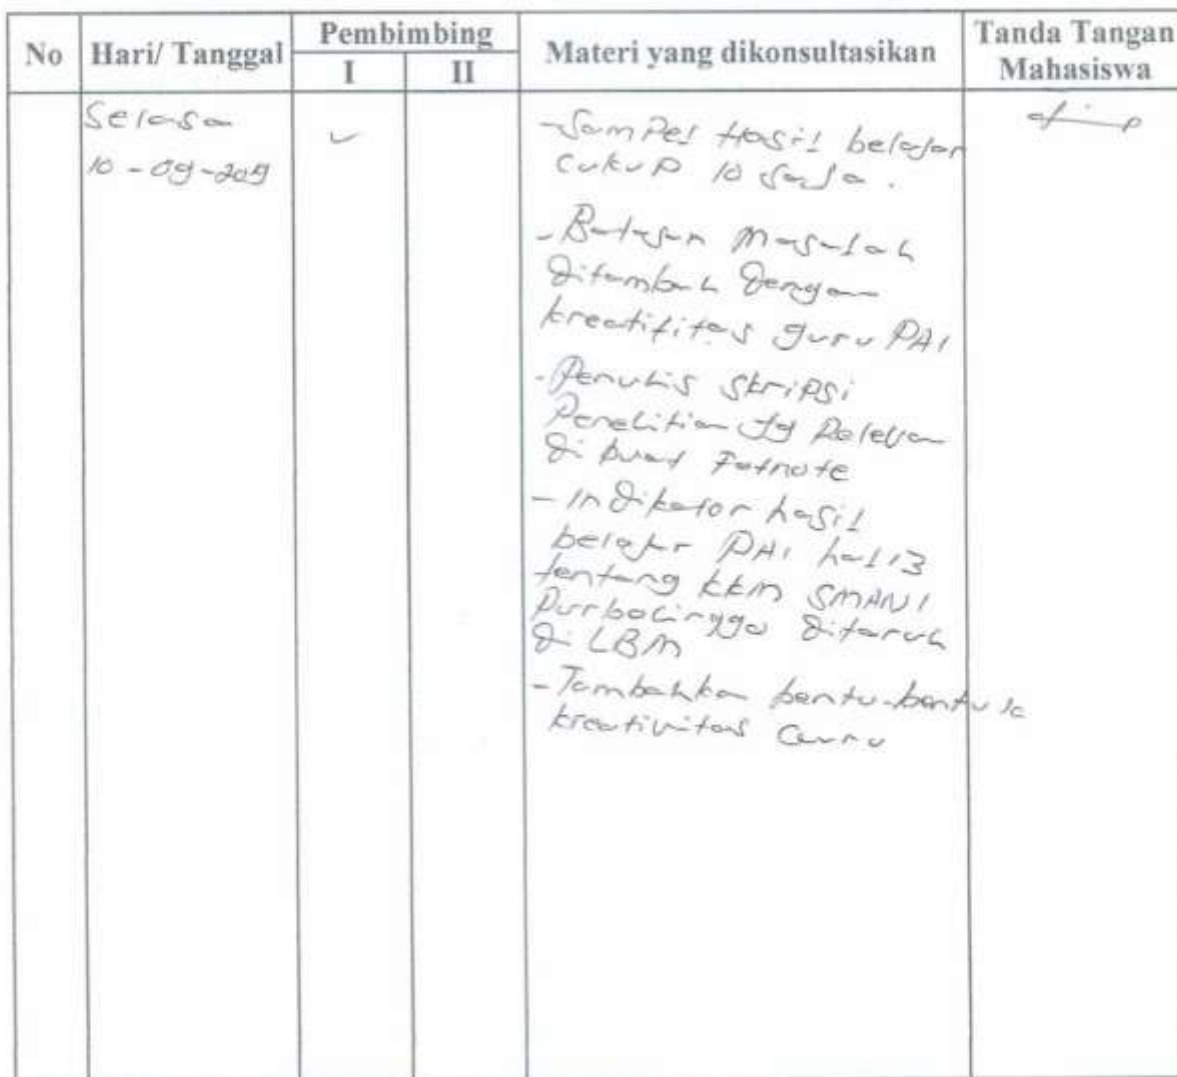 No Hari/ Tanggal Pembimbing Materi yang dikonsultasikan Tanda Tangan Mahasiswa
I II
Selasa
10 - 09 - 2019
- Sampel Hasil belajar
cukup 10 saja.
- Batasan Masalah
ditambah dengan
kreatifitas guru PAI
- Penulis skripsi
Penelitian yg Relevan
di buat Fotnote
- Indikator hasil
belajar PAI hal 13
tentang KKM SMAN 1
Purbolinggo ditaruh
di LBM
- Tambahkan bentu-bentuk
kreativitas Guru